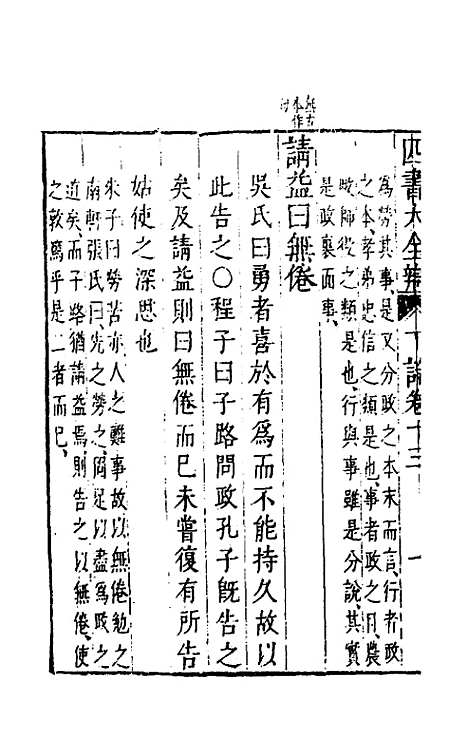 四書大全辯 下論卷十三 一
爲勞其事、是又分政之本末而言、行者政
之本、孝弟忠信之類是也、事者政之目、農
畋師役之類是也、行與事雖是分說、其實
是政裏面事、
無古
本作
請益曰無倦
吳氏曰勇者喜於有爲而不能持久故以
此告之〇程子曰子路問政孔子旣告之
矣及請益則曰無倦而已未嘗復有所告
姑使之深思也
朱子曰勞苦亦人之難事故以無倦勉之
南軒張氏曰、先之勞之、固足以盡爲政之
道矣、而子路猶請益焉、則告之以無倦、使
之敦篤乎是二者而已、